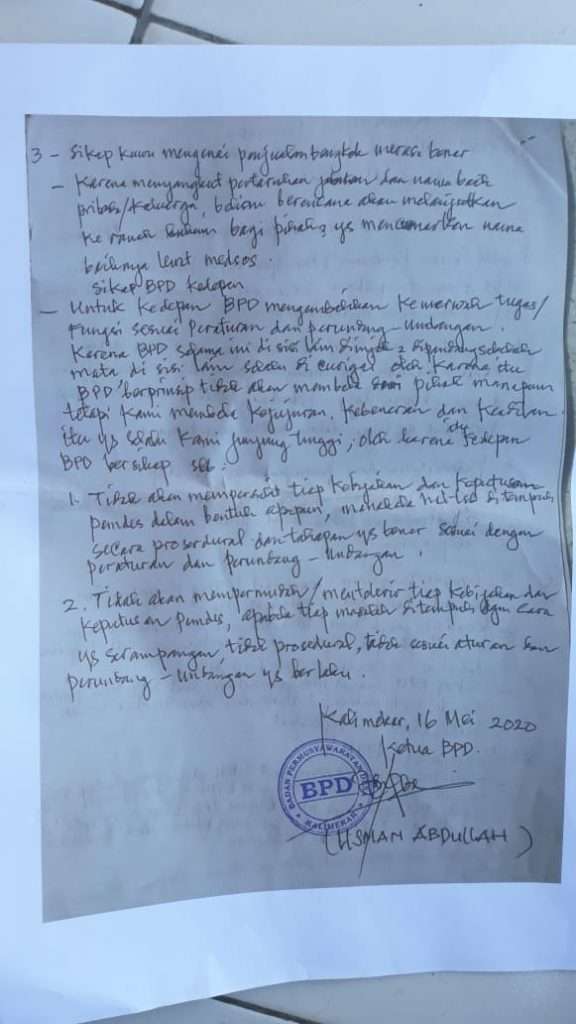 3 - Sikap Kuwu mengenai penjualan bangkok merasa benar
- Karena menyangkut pertaruhan jabatan dan nama baik
pribadi/Keluarga, beliau berencana akan melanjutkan
ke ranah hukum bagi pihak2 yg mencemarkan nama
baiknya lewat medsos.
Sikap BPD kedepan
- Untuk kedepan BPD mengembalikan Kemarwah tugas/
Fungsi sesuai Peraturan dan perundang-undangan.
Karena BPD selama ini di sisi lain dipandang sebelah
mata di sisi lain selalu di curigai oleh karena itu
BPD berprinsip tidak akan membela pihak manapun
tetapi kami membela Kejujuran, Kebenaran dan Keadilan
itu yg selalu kami junjung tinggi, oleh karena itu kedepan
BPD bersikap sbb:
1. Tidak akan mempersulit tiap Kebijakan dan Keputusan
pemdes dalam bentuk apapun, manakala hal-hal ditempuh
secara prosedural dan tahapan yg benar sesuai dengan
peraturan dan perundang-undangan.
2. Tidak akan mempermudah/mentolerir tiap Kebijakan dan
Keputusan Pemdes, apabila tiap masalah ditempuh dgn cara
yg serampangan, tidak prosedural, tidak sesuai aturan dan
perundang-undangan yg berlaku.
Kalimekar, 16 Mei 2020
Ketua BPD.
BADAN PERMUSYAWARATAN
BPD
KALIMEKAR
(USMAN ABDULLAH)